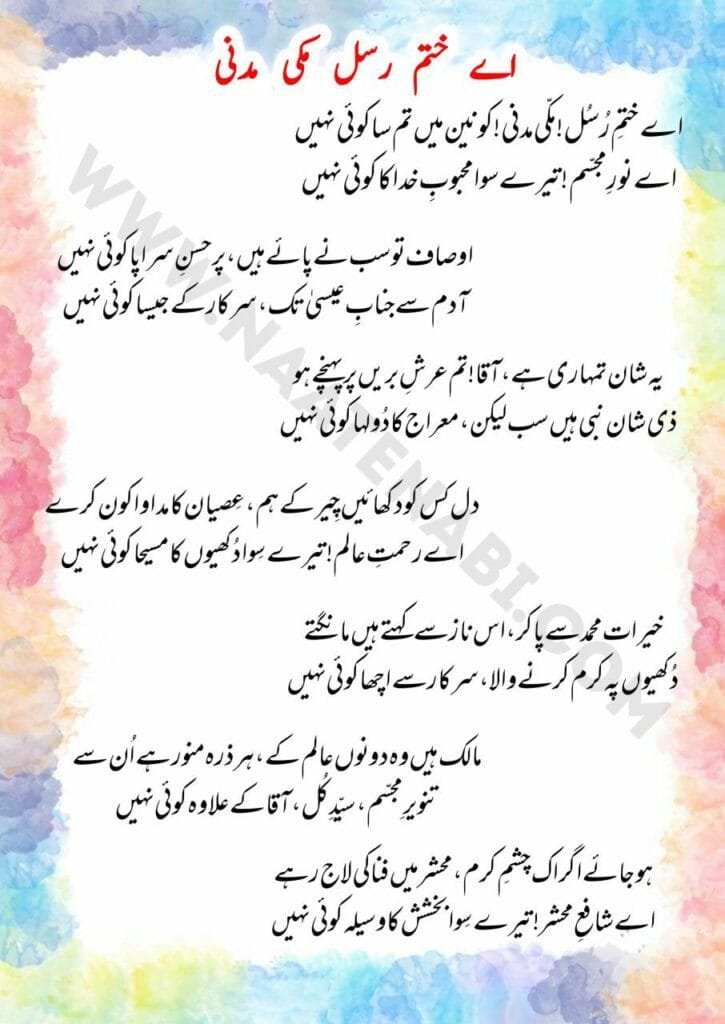 اے ختم رسل مکی مدنی
اے ختمِ رُسُل! مکّی مدنی! کونین میں تم سا کوئی نہیں
اے نورِ مجسّم! تیرے سوا محبوبِ خدا کا کوئی نہیں
اوصاف تو سب نے پائے ہیں، پر حسنِ سراپا کوئی نہیں
آدم سے جنابِ عیسیٰ تک، سرکار کے جیسا کوئی نہیں
یہ شان تمہاری ہے، آقا! تم عرشِ بریں پر پہنچے ہو
ذی شان نبی ہیں سب لیکن، معراج کا دُولہا کوئی نہیں
دل کس کو دکھائیں چِیر کے ہم، عِصیان کا مداوا کون کرے
اے رحمتِ عالم! تیرے سِوا دُکھیوں کا مسیحا کوئی نہیں
خیرات محمد سے پا کر، اس ناز سے کہتے ہیں مانگتے
دُکھیوں پہ کرم کرنے والا، سرکار سے اچھا کوئی نہیں
مالک ہیں وہ دونوں عالم کے، ہر ذرہ منور ہے اُن سے
تنویرِ مجسّم، سیّدِ کُل، آقا کے علاوہ کوئی نہیں
ہو جائے اگر اک چشمِ کرم، محشر میں فنا کی لاج رہے
اے شافعِ محشر! تیرے سِوا بخشش کا وسیلہ کوئی نہیں
WWW.NAATENABI.COM